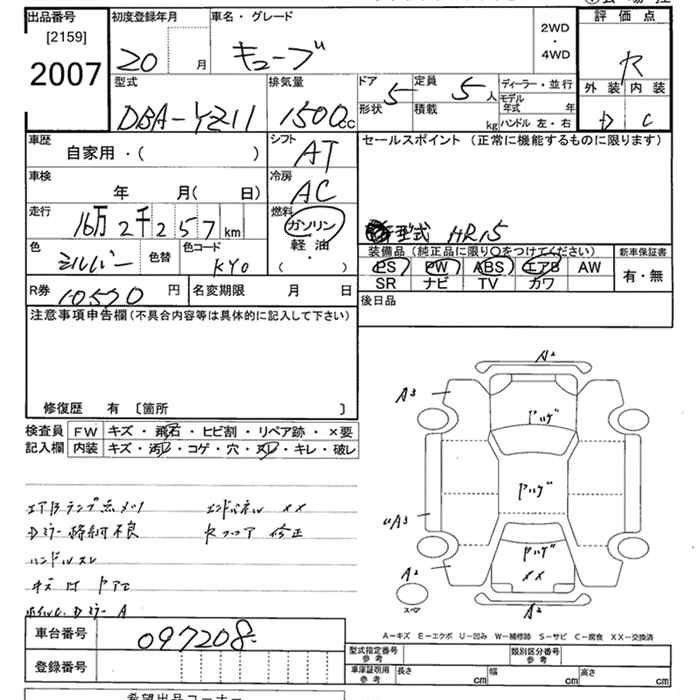 出品番号
[2159]
2007
初度登録年月
20 月
車名・グレード
キューブ
2WD
・
4WD
評価点
R
外装 内装
D C
型式
DBA-YZ11
排気量
1500cc
ドア 5
形状
定員 5 人
積載 kg
ディーラー・並行
モデル年式 年
ハンドル 左・右
車歴
自家用・( )
シフト
AT
セールスポイント (正常に機能するものに限ります)
型式 HR15
車検
年 月( 日)
冷房
AC
走行
16万2千257km
燃料
ガソリン
軽油
( ・ )
色
シルバー
色替
色コード
KY0
装備品 (純正品に限り○をつけてください)
PS PW ABS エアB AW
SR ナビ TV カワ
新車保証書
有・無
R券 10570 円
名変期限 月 日
後日品
注意事項申告欄 (不具合内容等は具体的に記入して下さい)
修復歴 有 〔箇所 〕
検査員
記入欄
FW キズ・飛石・ヒビ割・リペア跡・×要
内装 キズ・汚レ・コゲ・穴・スレ・キレ・破レ
エアBランプ点メツ
エンドパネル XX
Dミラー 格納不良
Rフロア 修正
ハンドルスレ
A2
A3
ヤハゲ
ヤハゲ
UA3
ヤハゲ
XX
A2
スペア
A2
A-キズ E-エクボ U-凹み W-補修跡 S-サビ C-腐食 XX-交換済
車台番号
097208
登録番号
型式指定番号
参考
類別区分番号
参考
車庫証明用
参考
長さ cm
幅 cm
高さ cm
希望出品コーナー